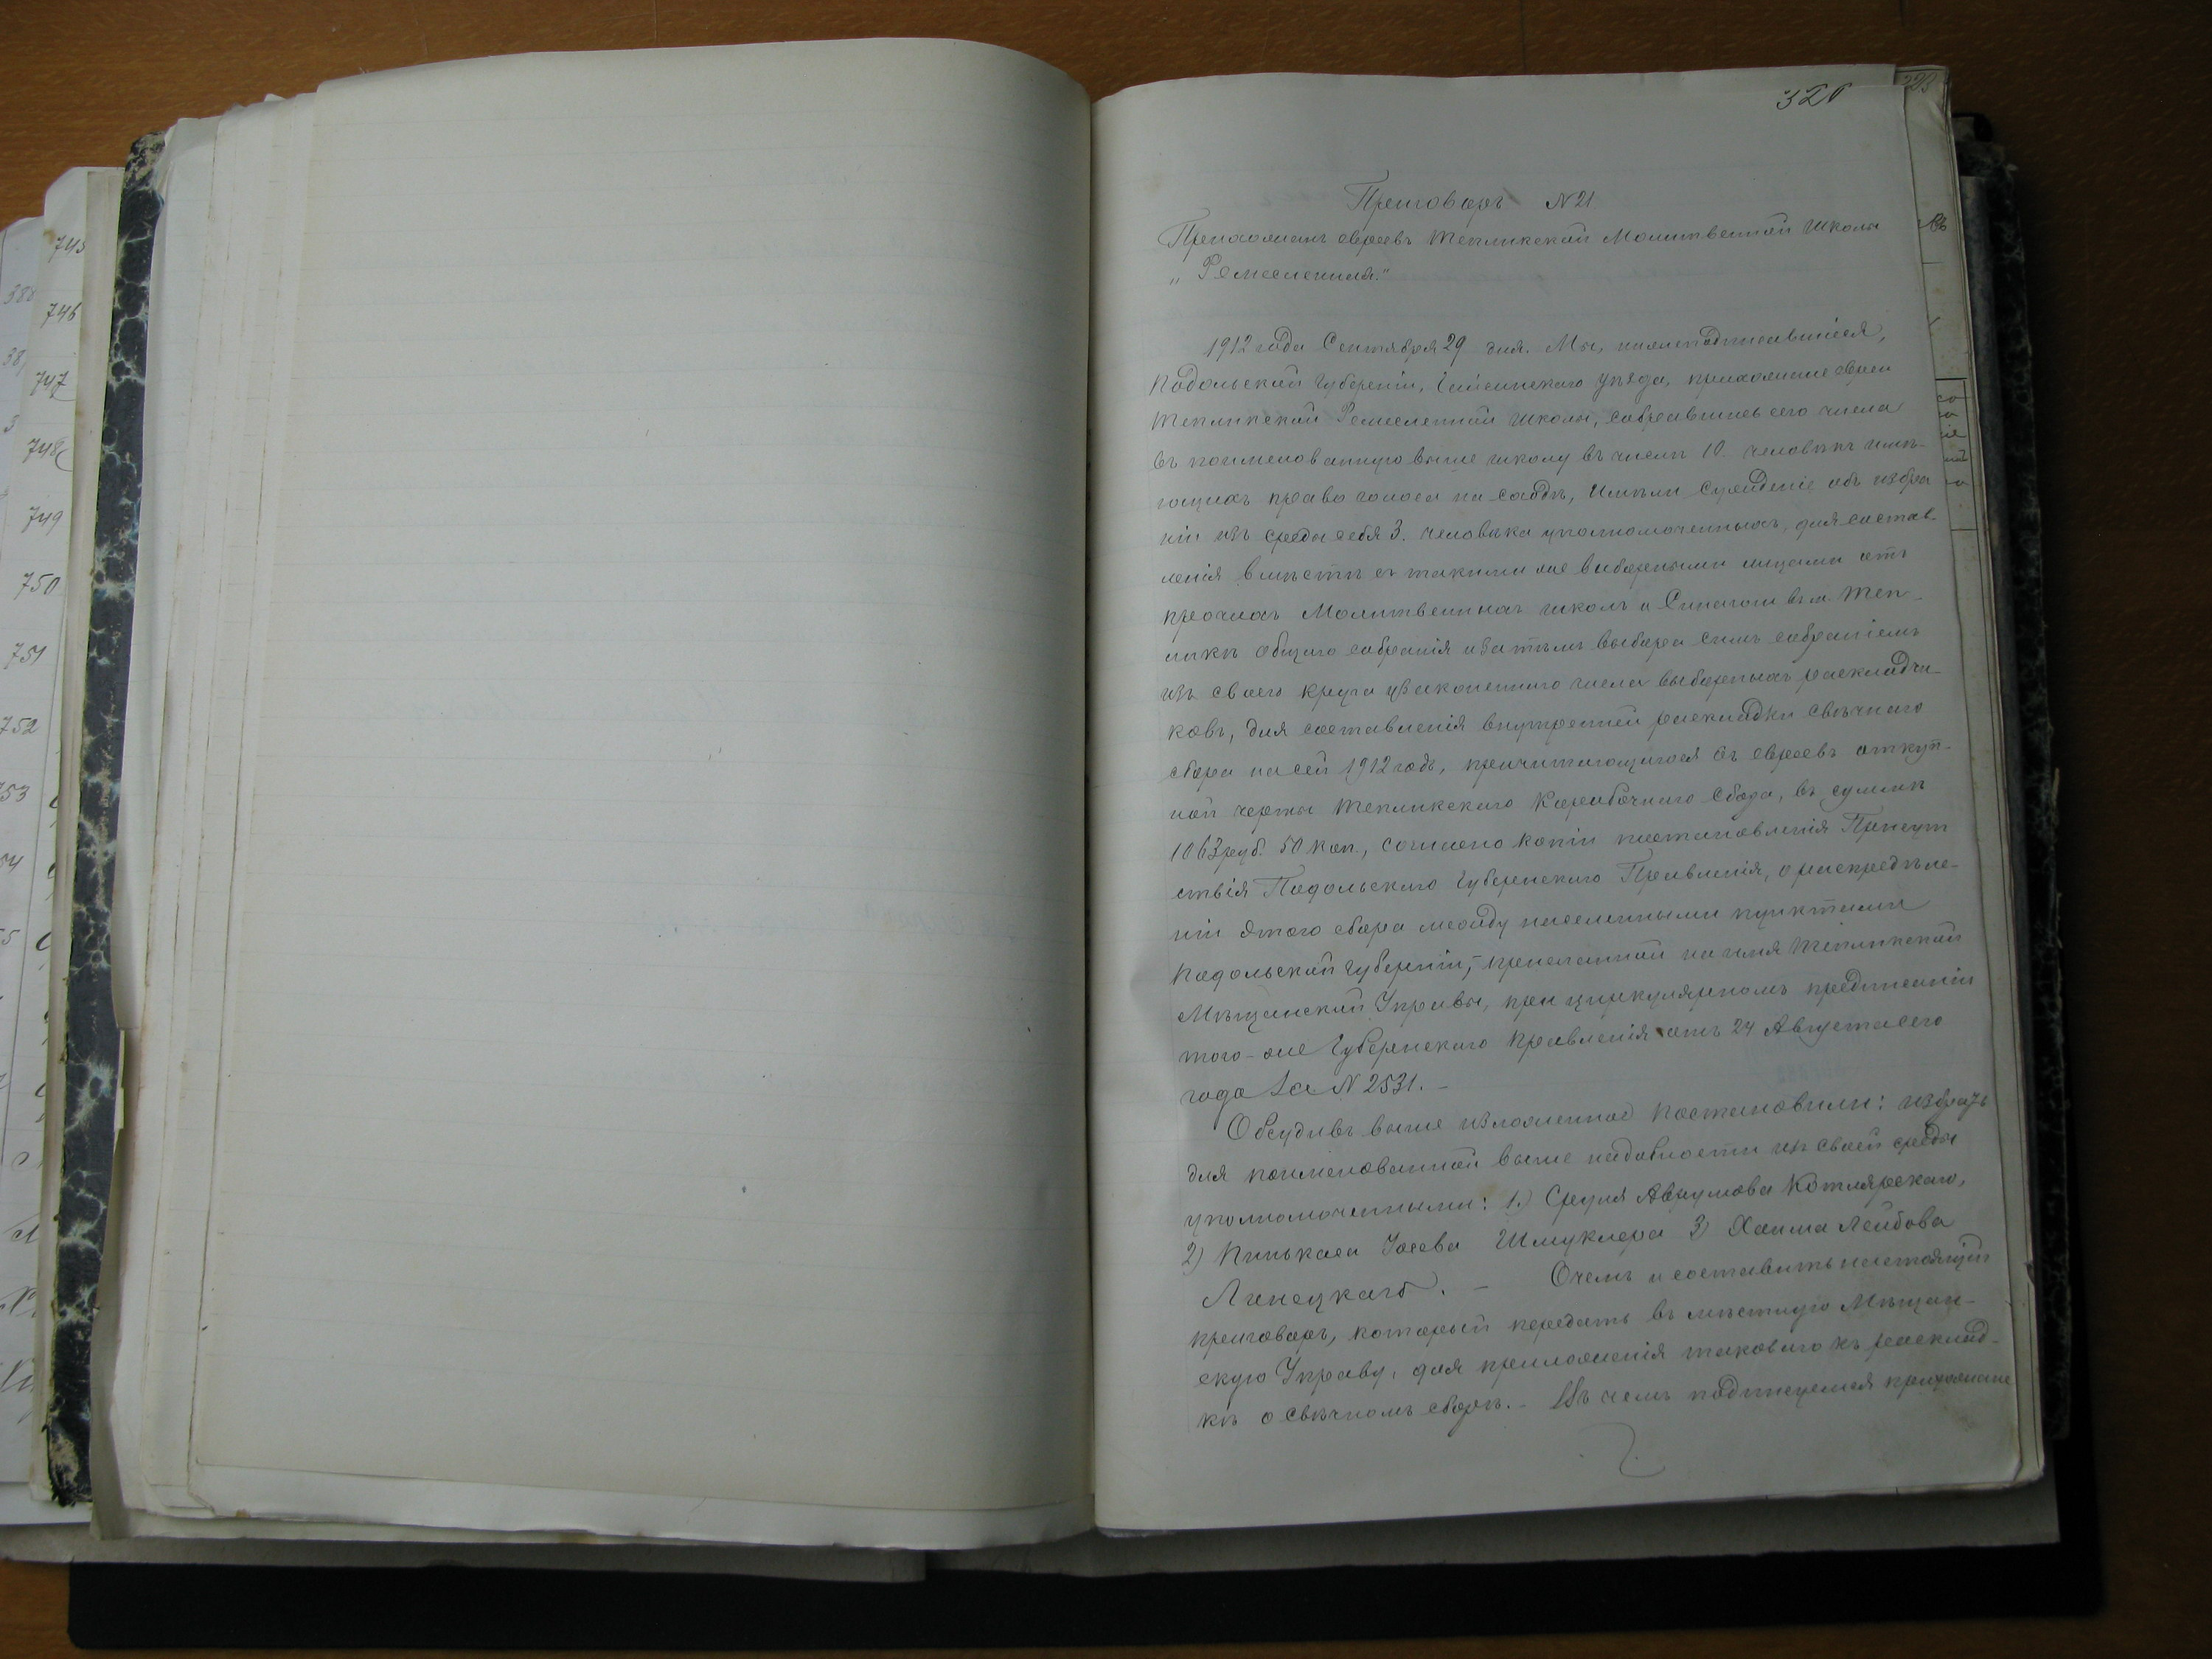 745
746
747
748
749
750
751
752
753
54
320
Приговоръ N 21
Прихожанъ евреевъ Тепликской Молитвенной Школы
„Ремесленная."
1912 года Сентября 29 дня. Мы, нижеподписавшіеся,
Подольской Губерніи, Гайсинскаго уѣзда, прихожане евреи
Тепликской Ремесленной школы, собравшись сего числа
въ поименованную выше школу въ числѣ 10 человѣкъ имѣ-
ющихъ право голоса на сходѣ, имѣли сужденіе объ избра
ніи изъ среды себя 3. человѣка уполномоченныхъ, для состав-
ленія вмѣстѣ съ такими же выборными лицами отъ
прочихъ Молитвенныхъ школъ и Синагоги въ м. Теп-
ликѣ общаго собранія и затѣмъ выбора симъ собраніемъ
изъ своего круга узаконеннаго числа выборныхъ раскладчи-
ковъ, для составленія внутренней раскладки свѣчнаго
сбора на сей 1912 годъ, причитающагося съ евреевъ откуп-
ной черты Тепликскаго Коробочнаго сбора, въ суммѣ
1063 руб. 50 коп., согласно копіи постановленія Присут
ствія Подольскаго Губернскаго Правленія, о распредѣле-
ніи этого сбора между населенными пунктами
Подольской губерніи, – присланной на имя Тепликской
Мѣщанской Управы, при циркулярномъ предписаніи
того-же Губернскаго Правленія отъ 24 Августа сего
года за N 2531. –
Обсудивъ выше изложенное постановили: избрать
для поименованной выше надобности изъ своей среды
уполномоченными: 1.) Сруля Аврумова Котлярскаго,
2) Пинькаса Іосева Шмуклера 3) Хаима Лейбова
Линецкаго. – Очемъ и составить настоящій
приговоръ, который передать въ мѣстную Мѣщан-
скую Управу, для приложенія таковаго къ расклад-
кѣ о свѣчномъ сборѣ. – Въ чемъ подписуемся прихожане